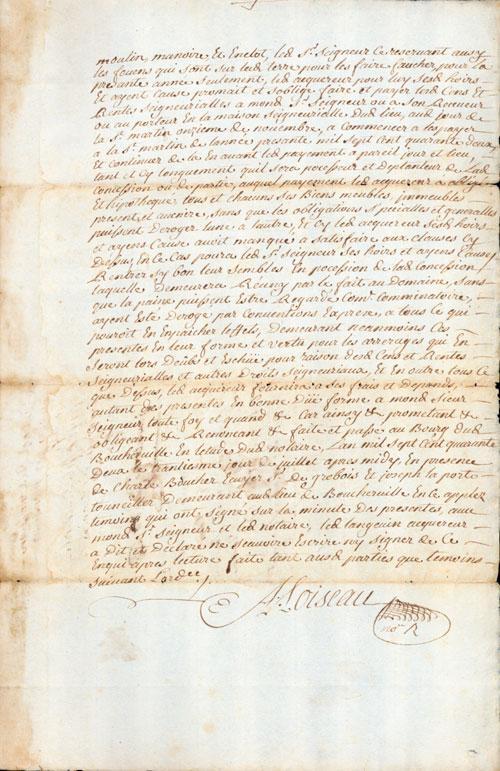 moulin, manoire Et Enclot, led. Sr. Seigneur Ce reservant aussy
les fouens qui sont sur lad. terre pour les faire faucher pour la
presante année Seulement, led. acquereur pour luy Sesd. hoirs
Et ayent Cause promait et soblige faire et payer lesd. Cens Et
Rentes Seigneurialles a mond. Sr. Seigneur ou a Son Receveur
ou au porteur En la maison Seigneurialle dud. lieu, aud. jour de
la St. martin onzieme de novembre, a Commencer a les payer
a la St. martin de lannée presante mil Sept Cent quarante deux
et Continuer de la En avant led. payement a pareil jour et lieu,
tant et Cy longuement quil Sera pocesseur et Detanteur de Lad.
Concession ou de partie, auquel payement led. acquereur a obligé
Et hipotheque, tous et chacuns Ses Biens meubles, immeubles
present et avenire, Sans que les obligations Speialles et generalle
puissent Deroger lune a lautre, Et Cy led. acquereur Sesd. hoirs
et ayens Cause avoit manque a Satisfaire aux clauses Cy
Dessus, En Ce Cas poura led. Sr. Seigneur Ses hoirs et ayens Cause
Rentrer Sy bon leur Sembles En pocession de lad. Concession
laquelle Demeurera Reuny par le fait au Domaine, Sans
que la paine puissent Estre Regardé Com.e Comminatoire,
ayent Esté Derogé par Conventions Expres, a tous Ce qui
pouroit En Enpaicher lefset, Demeurant neanmoins Ces
presentes En leur forme et vertu pour les arrerages qui En
Seront lors Deübs Et Eschüe pour raison desd. Cens et Rentes
Seigneurialles et autres Droits Seigneuriaux, Et En outre tous le
que Dessus, led. acquereur fournira a Ses frais et Depends,
autant des presentes En bonne Düe forme a mond. Sieur
Seigneur toute foy et quand &c. Car ainsy &c. prometant &c.
obligeant &c. Renoncans &c. faite et passe au Bourg dud.
Boucherville En letude dud. notaire, Lan mil Sept Cent quarante
Deux le trantiesme jour de juillet apres midy, En presence
de Charle Boucher Ecuyer Sr. de grobois Et joseph la porte
tounellier Demeurant aud. lieu de Boucherville En Ce appelez
temoins qui ont Signe Sur la minute des presentes, avec
mond. Sr. Seigneur et led. notaire, led. langevin acquereur
a Dit et Declare ne Scavoire Escrire ny Signer de Ce
Enquis apres lecture faite tant ausd. parties que temoins
Suivant Lord.ce
A. Loiseau
no.re R